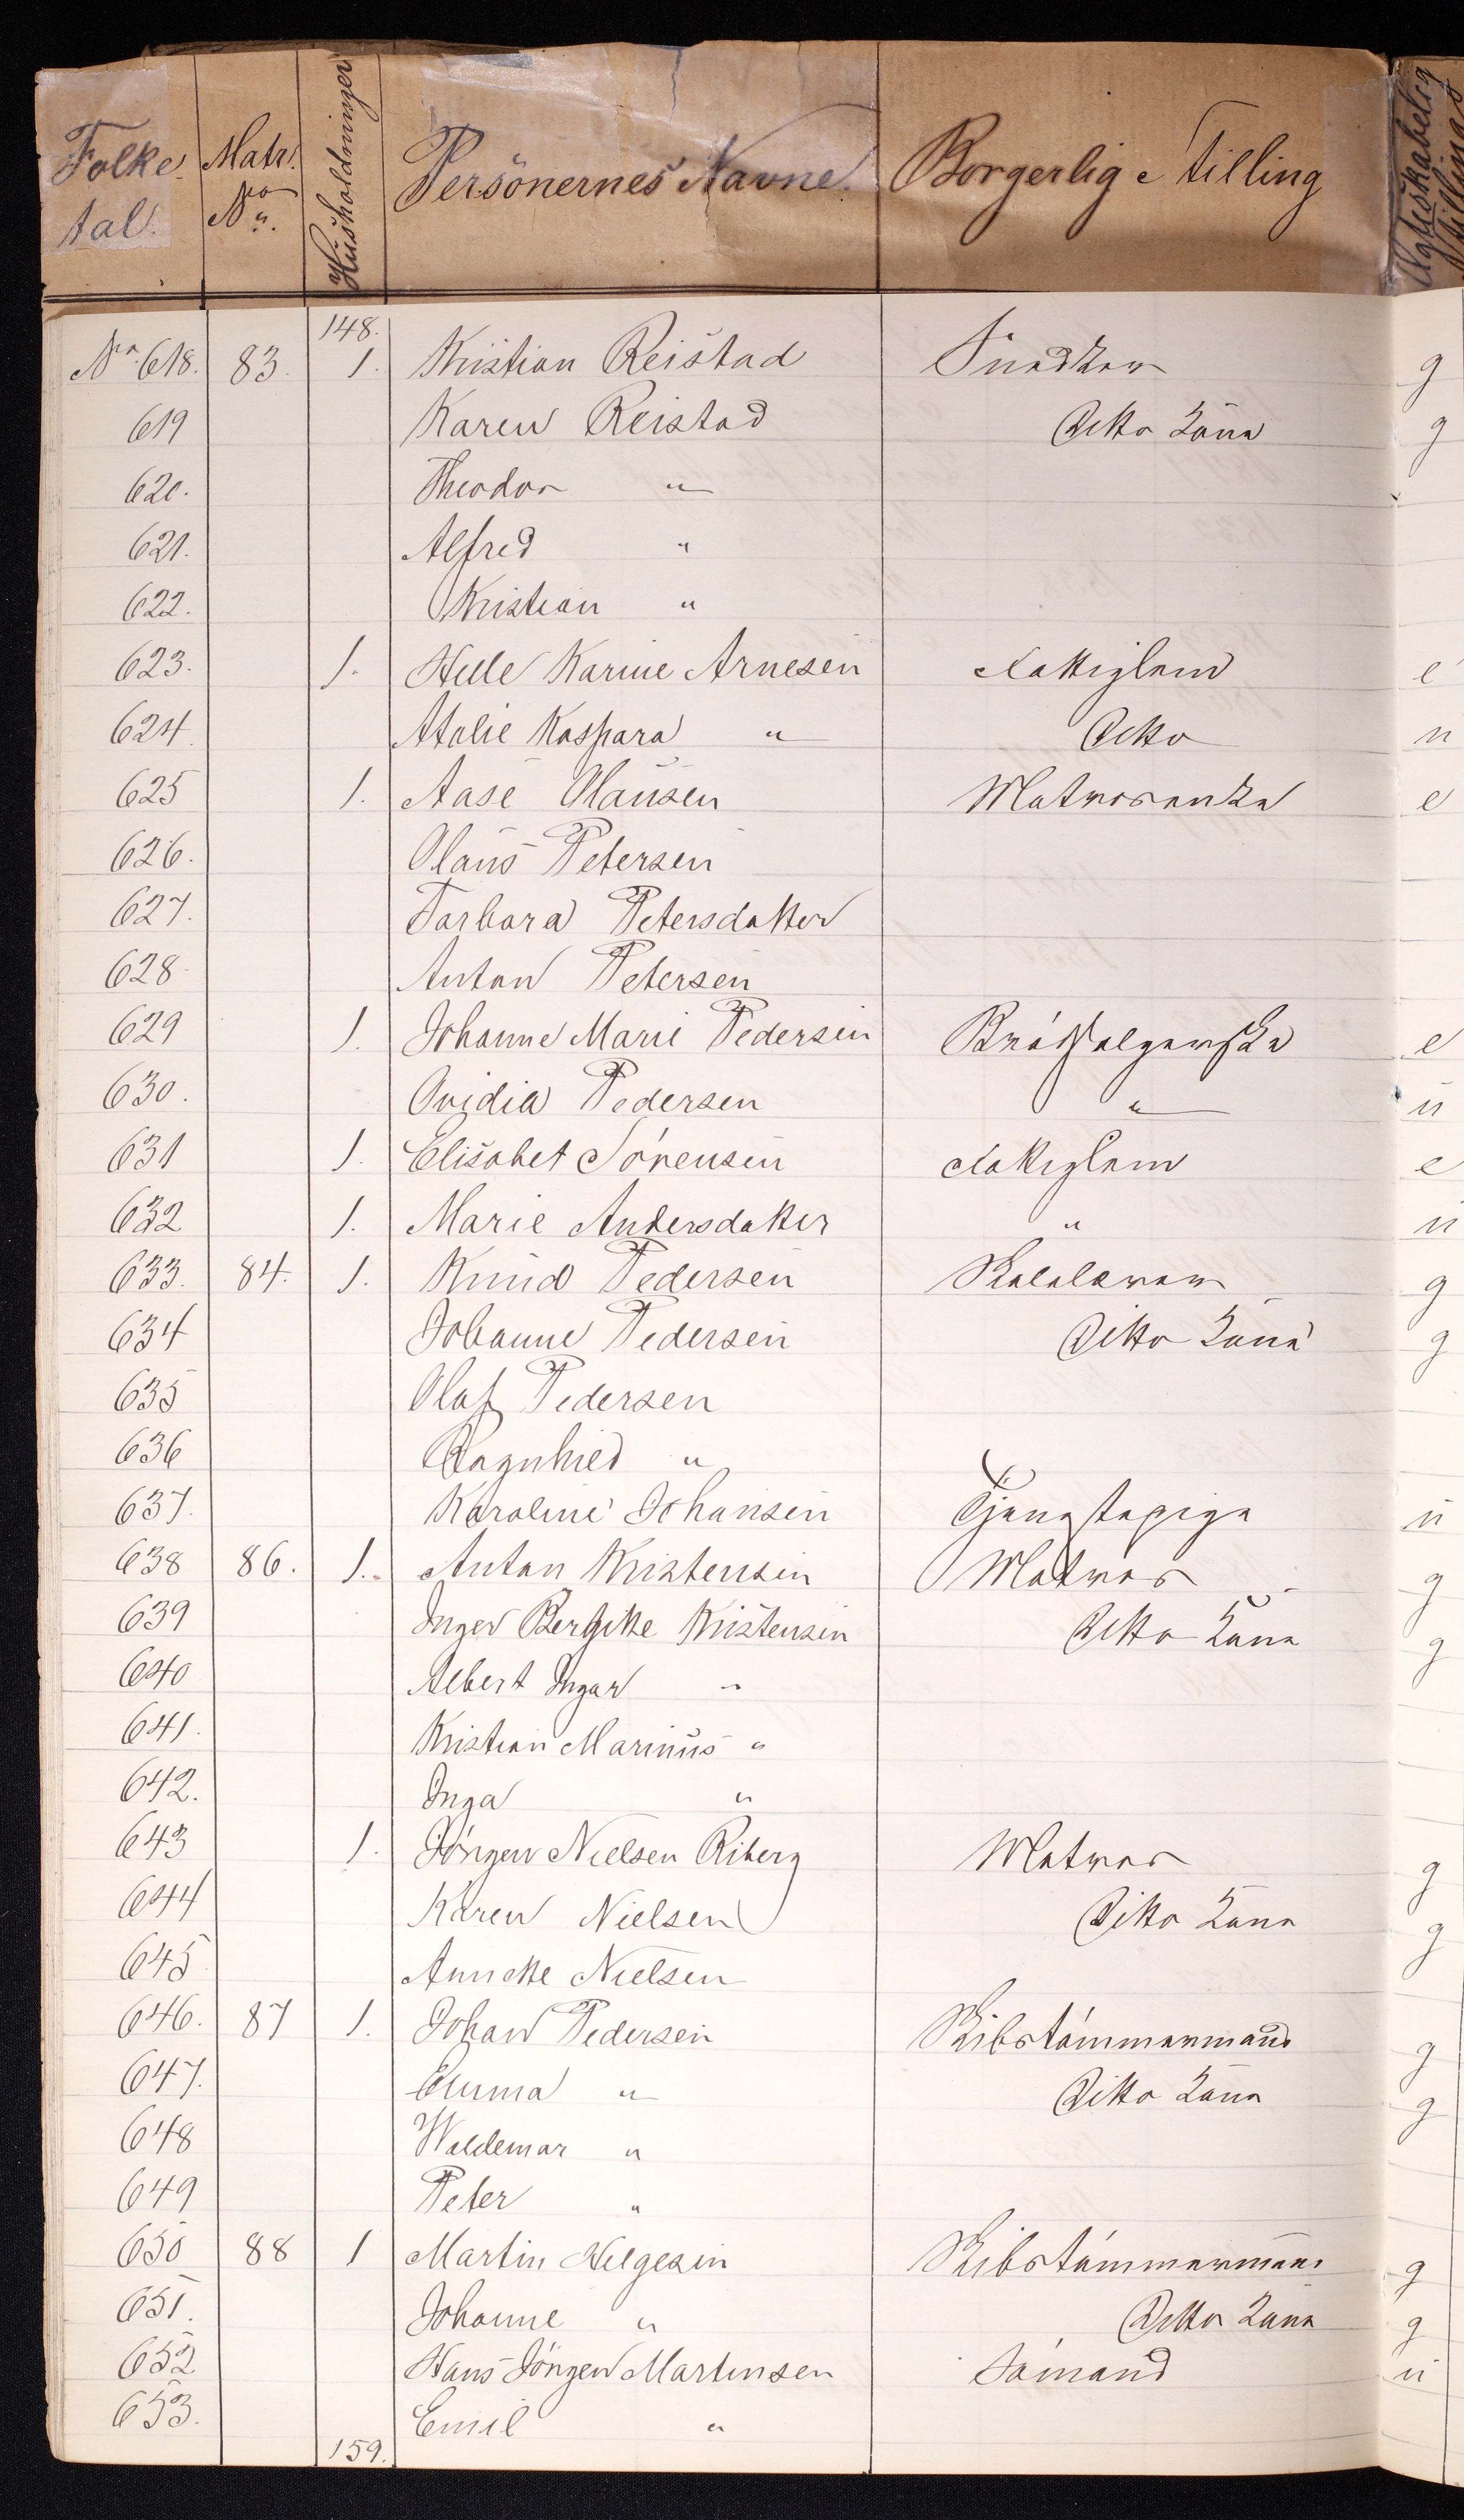 Folketal. Matr. No. Husholdninger Personernes Navne. Borgerlig Stilling Ægteskabelig Stilling
148.
No. 618. 83. 1. Kristian Reistad Snedker g
619 Karen Reistad Ditto Kone g
620. Theodor "
621. Alfred "
622. Kristian "
623. 1. Helle Karine Arnesen Fattiglem e
624 Atalie Kaspara " Ditto u
625 1. Aase Olausen Matrosenke e
626. Olaus Petersen
627. Barbara Petersdatter
628 Anton Petersen
629 1. Johanne Marie Pedersen Brödsælgerske e
630. Ovidia Pedersen " u
631 1. Elisabet Sörensen Fattiglem e
632 1. Marie Andersdatter " u
633. 84. 1. Knud Pedersen g
634 Johanne Pedersen Ditto Kone g
635 Olaf Pedersen
636 Ragnhild "
637. Karoline Johansen Tjenestepige u
638 86. 1. Anton Kristensen Matros g
639 Inger Bergitte Kristensen Ditto Kone g
640 Albert Ingar "
641. Kristian Marinus "
642. Inga "
643 1. Jörgen Nielsen Riberg Matros g
644 Karen Nielsen Ditto Kone g
645 Annette Nielsen
646. 87 1. Johan Pedersen Skibstömmermand g
647. Emma " Ditto Kone g
648 Waldemar "
649 Peter "
650 88 1 Martin Helgesen Skibstömmermand g
651. Johanne " Ditto Kone g
652 Hans Jörgen Martinsen Sömand u
653. Emil "
159.